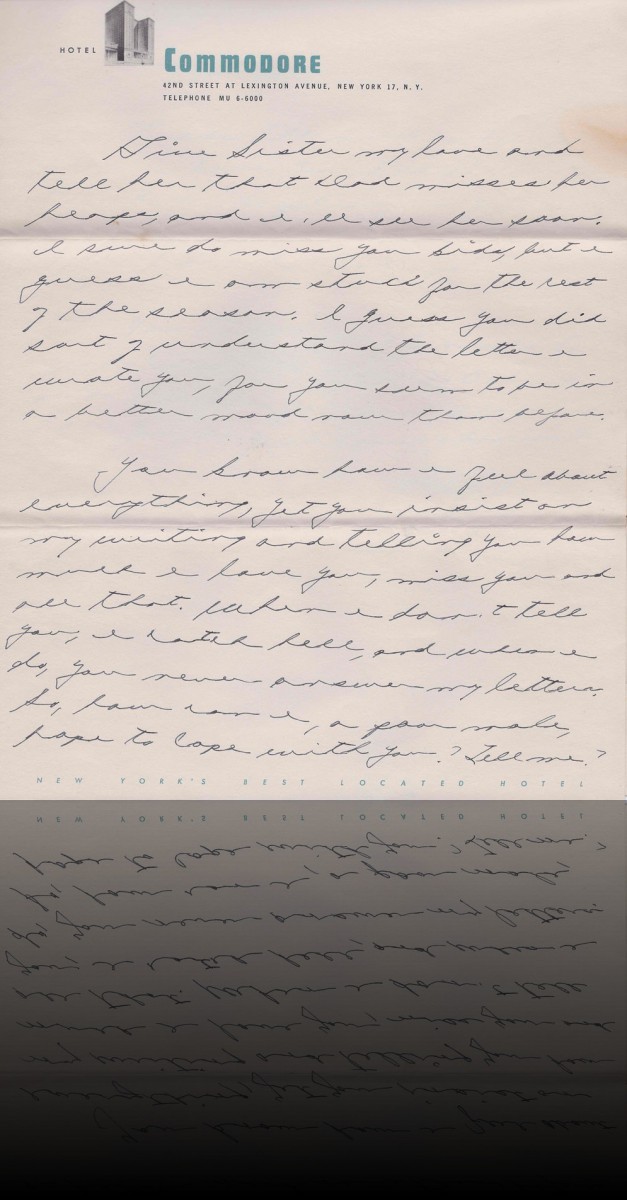 HOTEL
COMMODORE
42ND STREET AT LEXINGTON AVENUE, NEW YORK 17, N. Y.
TELEPHONE MU 6-6000
Give Sister my love and
tell her that Dad misses her
heaps, and i'll see her soon.
I sure do miss you kids, but i
guess i am stuck for the rest
of the season. I guess you did
sort of understand the letter i
wrote you, for you seem to be in
a better mood now than before.
You know how i feel about
everything, yet you insist on
my writing and telling you how
much i love you, miss you and
all that. When i don't tell
you, i catch hell, and when i
do, you never answer my letters.
So, how can i, a poor male,
hope to cope with you? Tell me?
NEW YORK'S BEST LOCATED HOTEL